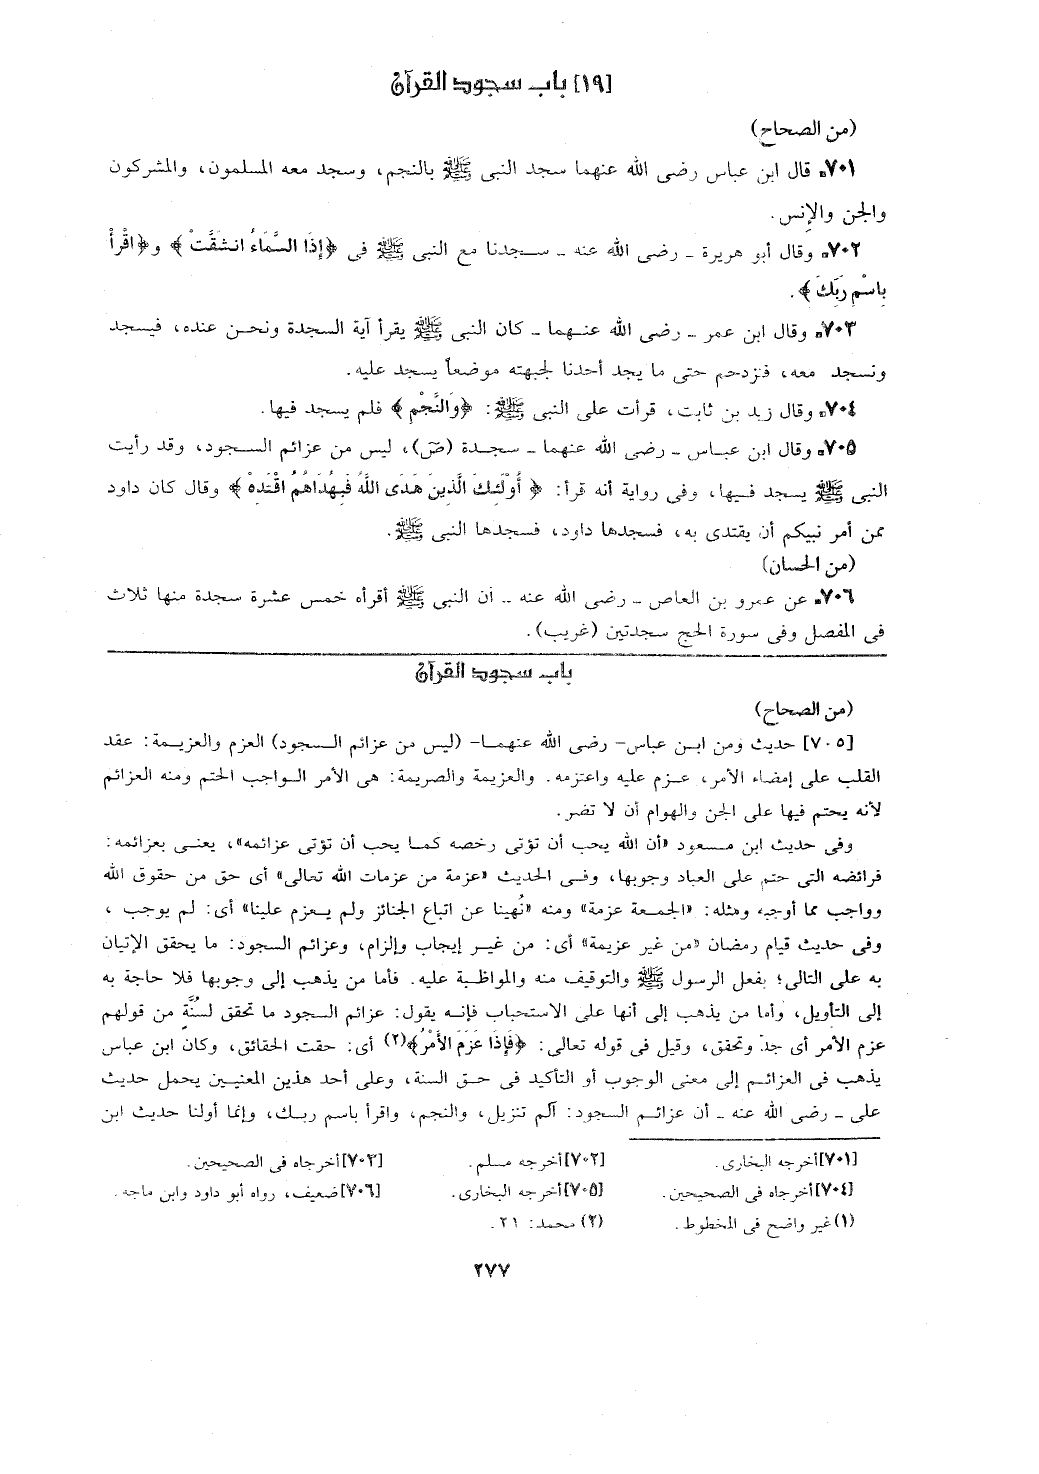 [١٩] باب سجود القرآن
(من الصحاح)
٧٠١ـ قال ابن عباس رضى الله عنهما سجد النبى ﷺ بالنجم، وسجد معه المسلمون، والمشركون
والجن والإنس.
٧٠٢ـ وقال أبو هريرة ـ رضى الله عنه ـ سـجدنا مع النبى ﷺ فى ﴿إِذَا السَّمَاءُ انشَقَّتْ﴾ و﴿اقْرَأْ
بِاسْمِ رَبِّكَ﴾.
٧٠٣ـ وقال ابن عمر ـ رضى الله عنهما ـ كان النبى ﷺ يقرأ آية السجدة ونحن عنده، فيسجد
ونسجد معه، فنزدحم حتى ما يجد أحدنا لجبهته موضعاً يسجد عليه.
٧٠٤ـ وقال زيد بن ثابت، قرأت على النبى ﷺ: ﴿وَالنَّجْمِ﴾ فلم يسجد فيها.
٧٠٥ـ وقال ابن عباس ـ رضى الله عنهما ـ سجدة (صَ)، ليس من عزائم السجود، وقد رأيت
النبى ﷺ يسجد فيها، وفى رواية أنه قرأ: ﴿أُوْلَئِكَ الَّذِينَ هَدَى اللَّهُ فَبِهُدَاهُمُ اقْتَدِهْ﴾ وقال كان داود
ممن أمر نبيكم أن يقتدى به، فسجدها داود، فسجدها النبى ﷺ.
(من الحسان)
٧٠٦ـ عن عمرو بن العاص ـ رضى الله عنه ـ أن النبى ﷺ أقرأه خمس عشرة سجدة منها ثلاث
فى المفصل وفى سورة الحج سجدتين (غريب).
باب سجود القرآن
(من الصحاح)
[٧٠٥] حديث ومن ابن عباس- رضى الله عنهما- (ليس من عزائم السجود) العزم والعزيمة: عقد
القلب على إمضاء الأمر، عزم عليه واعتزمه. والعزيمة والصريمة: هى الأمر الواجب الحتم ومنه العزائم
لأنه يحتم فيها على الجن والهوام أن لا تضر.
وفى حديث ابن مسعود «أن الله يحب أن تؤتى رخصه كما يحب أن تؤتى عزائمه»، يعنى بعزائمه:
فرائضه التى حتم على العباد وجوبها، وفى الحديث «عزمة من عزمات الله تعالى» أى حق من حقوق الله
وواجب مما أوجبه ومثله: «الجمعة عزمة» ومنه «نُهينا عن اتباع الجنائز ولم يعزم علينا» أى: لم يوجب ،
وفى حديث قيام رمضان «من غير عزيمة» أى: من غير إيجاب وإلزام، وعزائم السجود: ما يحقق الإتيان
به على التالى؛ بفعل الرسول ﷺ والتوقيف منه والمواظبة عليه. فأما من يذهب إلى وجوبها فلا حاجة به
إلى التأويل، وأما من يذهب إلى أنها على الاستحباب فإنه يقول: عزائم السجود ما تحقق لسُنَّةٍ من قولهم
عزم الأمر أى جدّ وتحقق، وقيل فى قوله تعالى: ﴿فَإِذَا عَزَمَ الأَمْرُ﴾(٢) أى: حقت الحقائق، وكان ابن عباس
يذهب فى العزائم إلى معنى الوجوب أو التأكيد فى حق السنة، وعلى أحد هذين المعنيين يحمل حديث
على ـ رضى الله عنه ـ أن عزائم السجود: آلم تنزيل، والنجم، واقرأ باسم ربك، وإنما أولنا حديث ابن
[٧٠١]أخرجه البخارى. [٧٠٢]أخرجه مسلم. [٧٠٣]أخرجاه فى الصحيحين.
[٧٠٤]أخرجاه فى الصحيحين. [٧٠٥]أخرجه البخارى. [٧٠٦]ضعيف، رواه أبو داود وابن ماجه.
(١) غير واضح فى المخطوط. (٢) محمد: ٢١.
٢٧٧